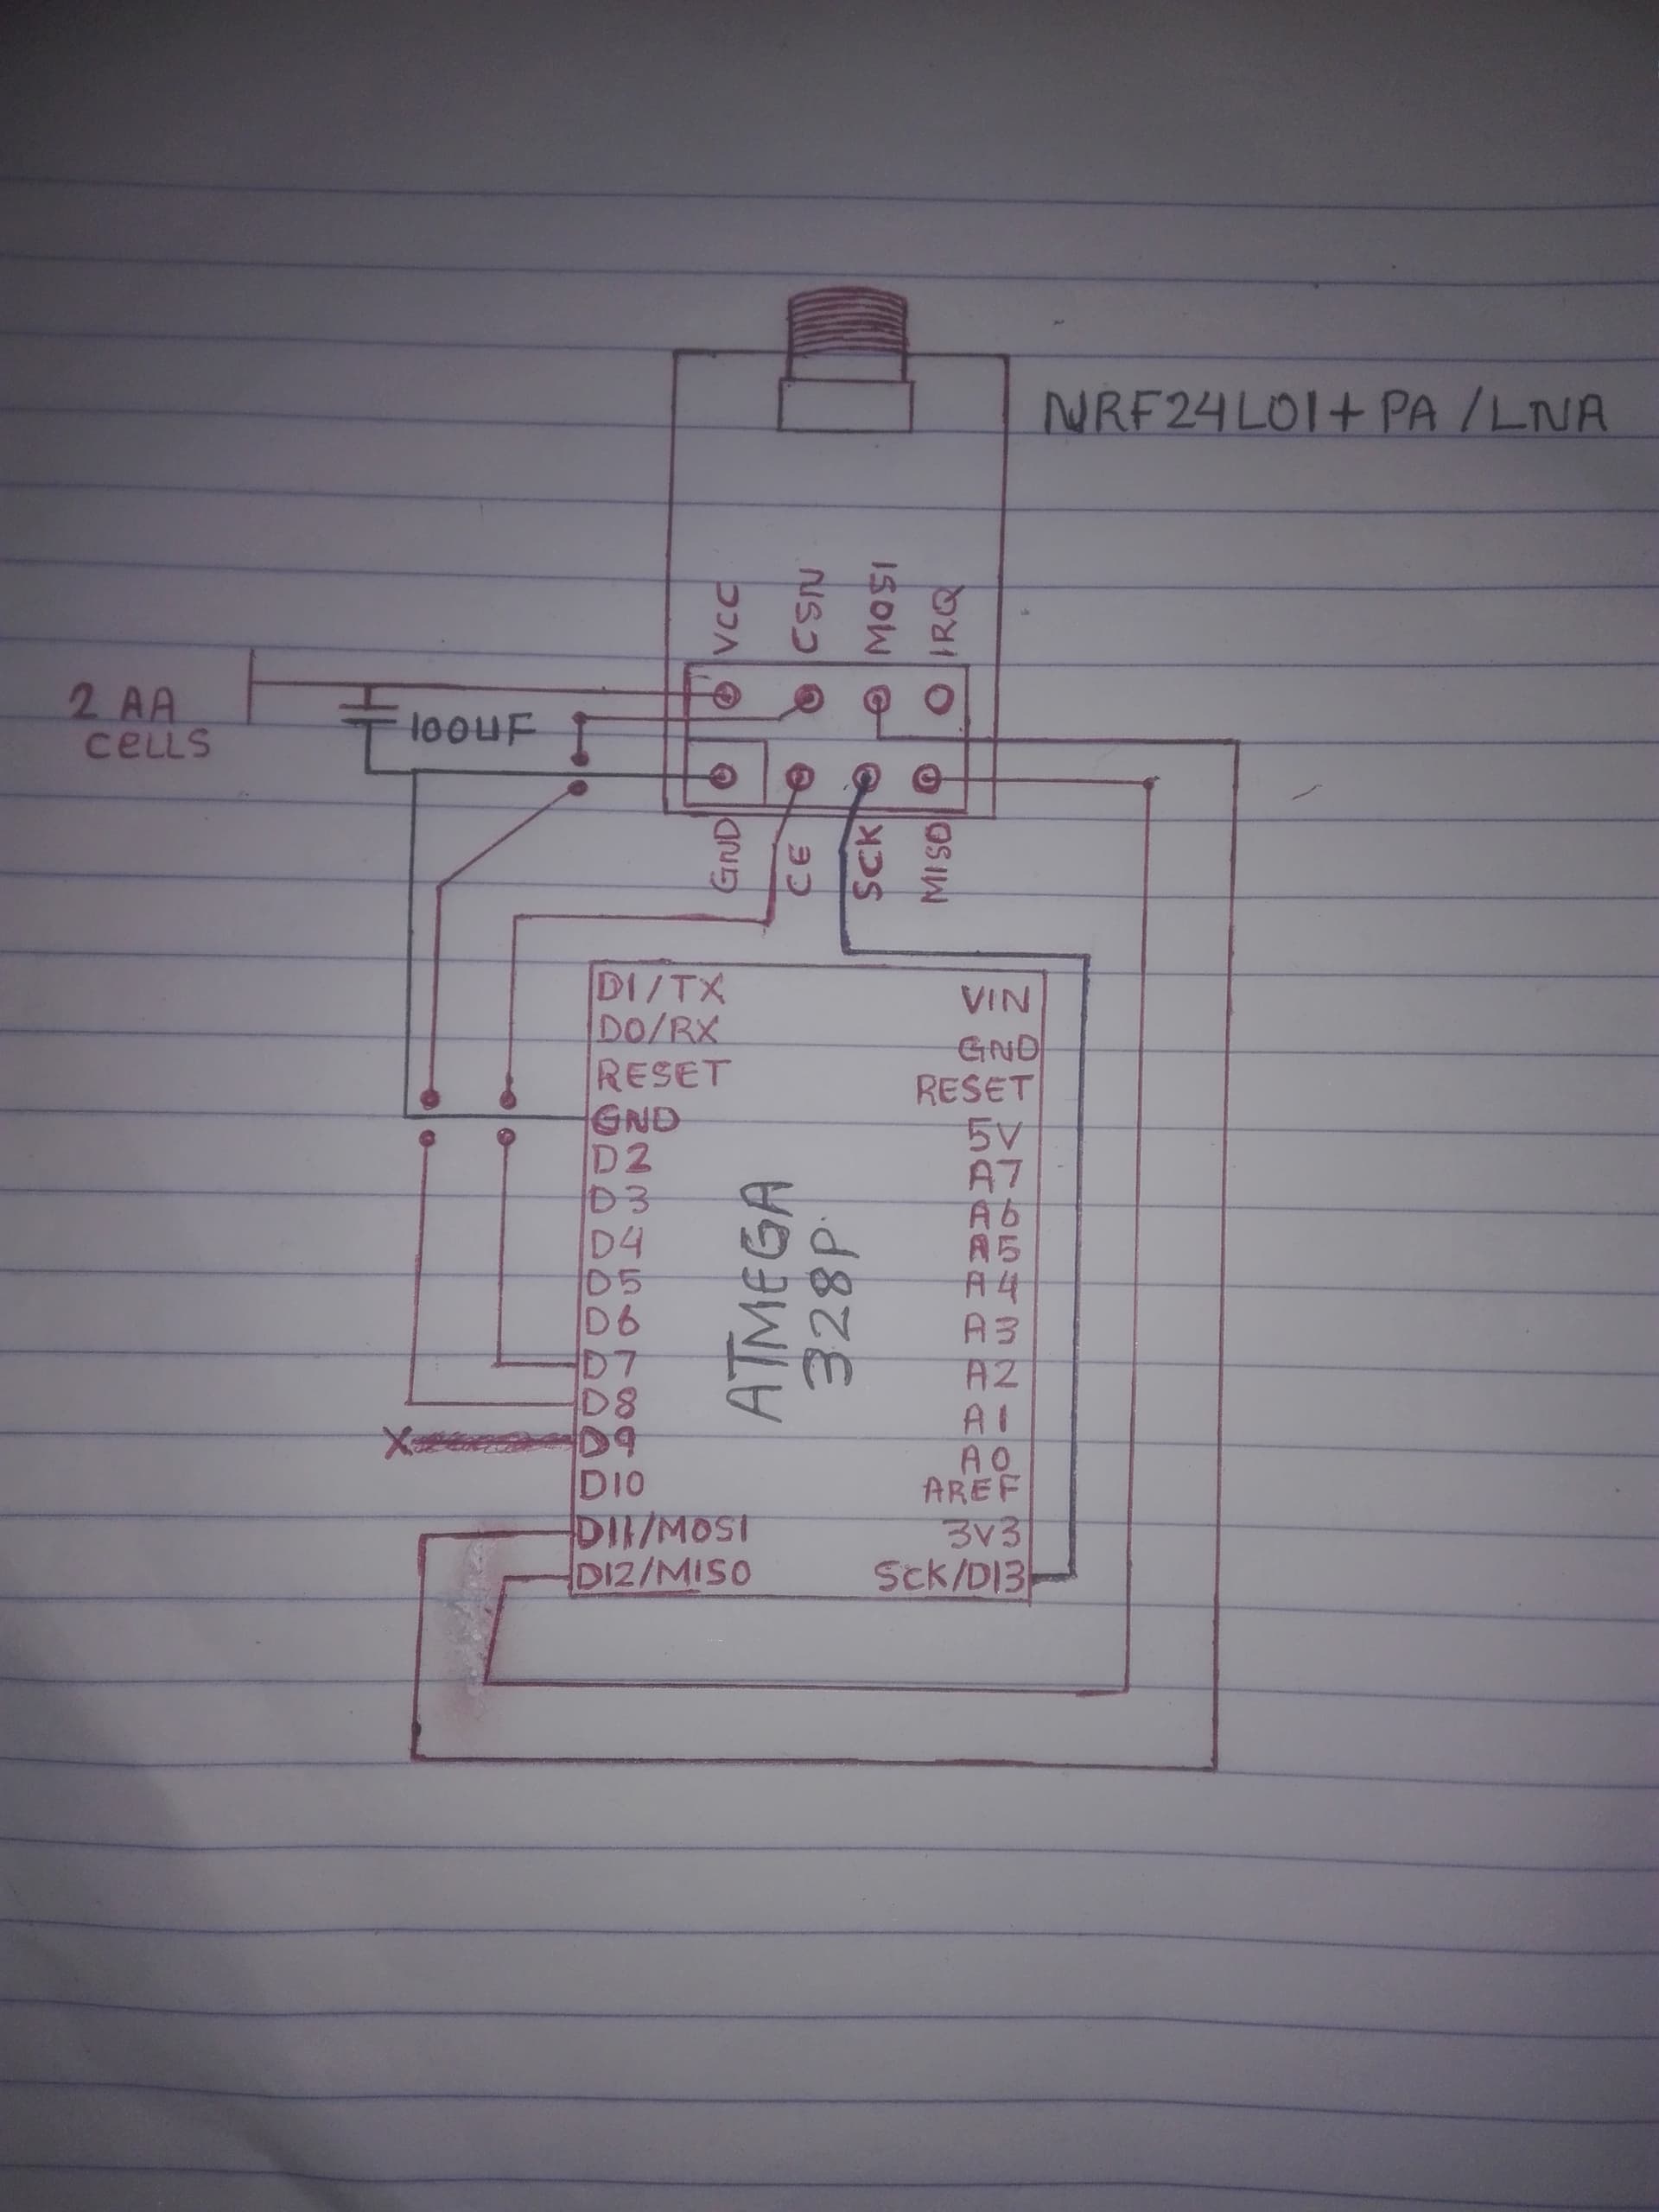 NRF24L01+ PA/LNA
VCC
CSN
MOSI
IRQ
2 AA
CELLS
100UF
GND
CE
SCK
MISO
D1/TX
D0/RX
RESET
GND
D2
D3
D4
D5
D6
D7
D8
X
D9
D10
D11/MOSI
D12/MISO
ATMEGA
328P
VIN
GND
RESET
5V
A7
A6
A5
A4
A3
A2
A1
A0
AREF
3V3
SCK/D13